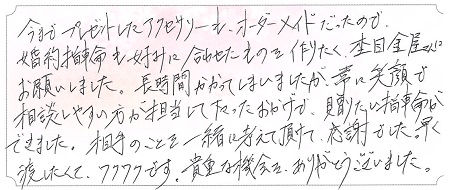 今までプレゼントしたアクセサリーも、オーダーメイドだったので、
婚約指輪も好みに合わせたものを作りたく、杢目金屋さんに
お願いしました。長時間かかってしまいましたが、常に笑顔で
相談しやすい方が担当して下さったおかげで、見劣りしない指輪が
できました。相手のことを一緒に考えて頂けて、感謝でした。早く
渡したくて、ワクワクです。貴重な機会を、ありがとうございました。